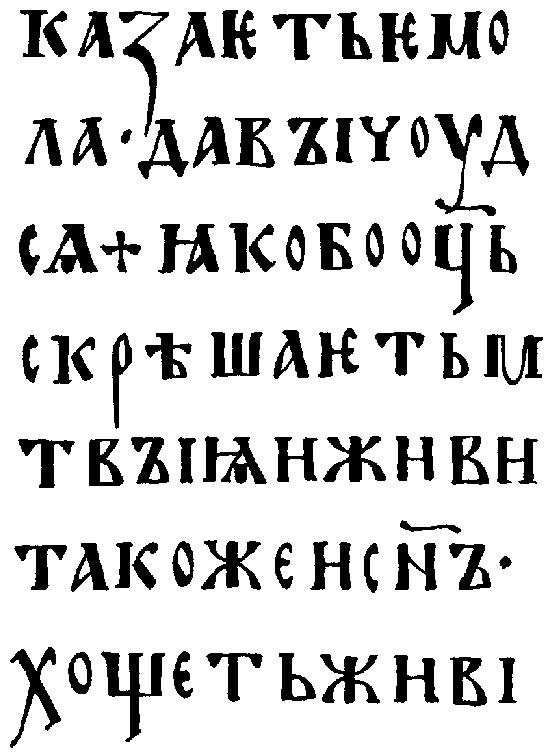 КАЗАѤТЬѤМО
ЛА·ДАВЪІЧОУД
СѦ+ꙖКОБООЦ҃Ь
СКРѢШАѤТЬМ
ТВЪІѨИЖИВИ
ТАКОЖЕИСН҃Ъ·
ХОЩЕТЬЖИВІ